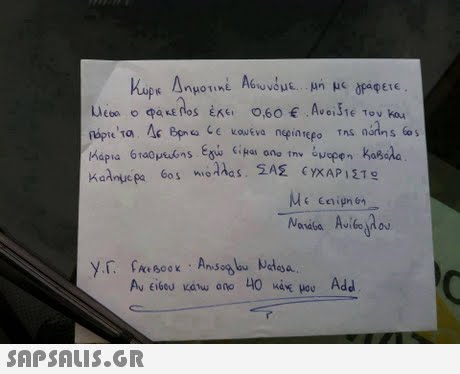 Κύριε Δημοτικέ Αστυνόμε... μη με γράφετε.
Μέσα ο φάκελος έχει 0,60 € . Ανοίξτε τον και
πάρτε τα. Δε βρήκα σε κανένα περίπτερο της πόλης σας
κάρτα σταθμευσης Εγώ είμαι απο την όμορφη Καβάλα.
Καλημέρα σας κιόλλας. ΣΑΣ ΕΥΧΑΡΙΣΤΩ
Με εκτίμηση
Νατάσα Ανίσογλου.
Υ.Γ. FACEBOOK : Anisoglou Natasa.
Αν είσαι κάτω απο 40 κάνε μου Add.
SAPSALIS.GR